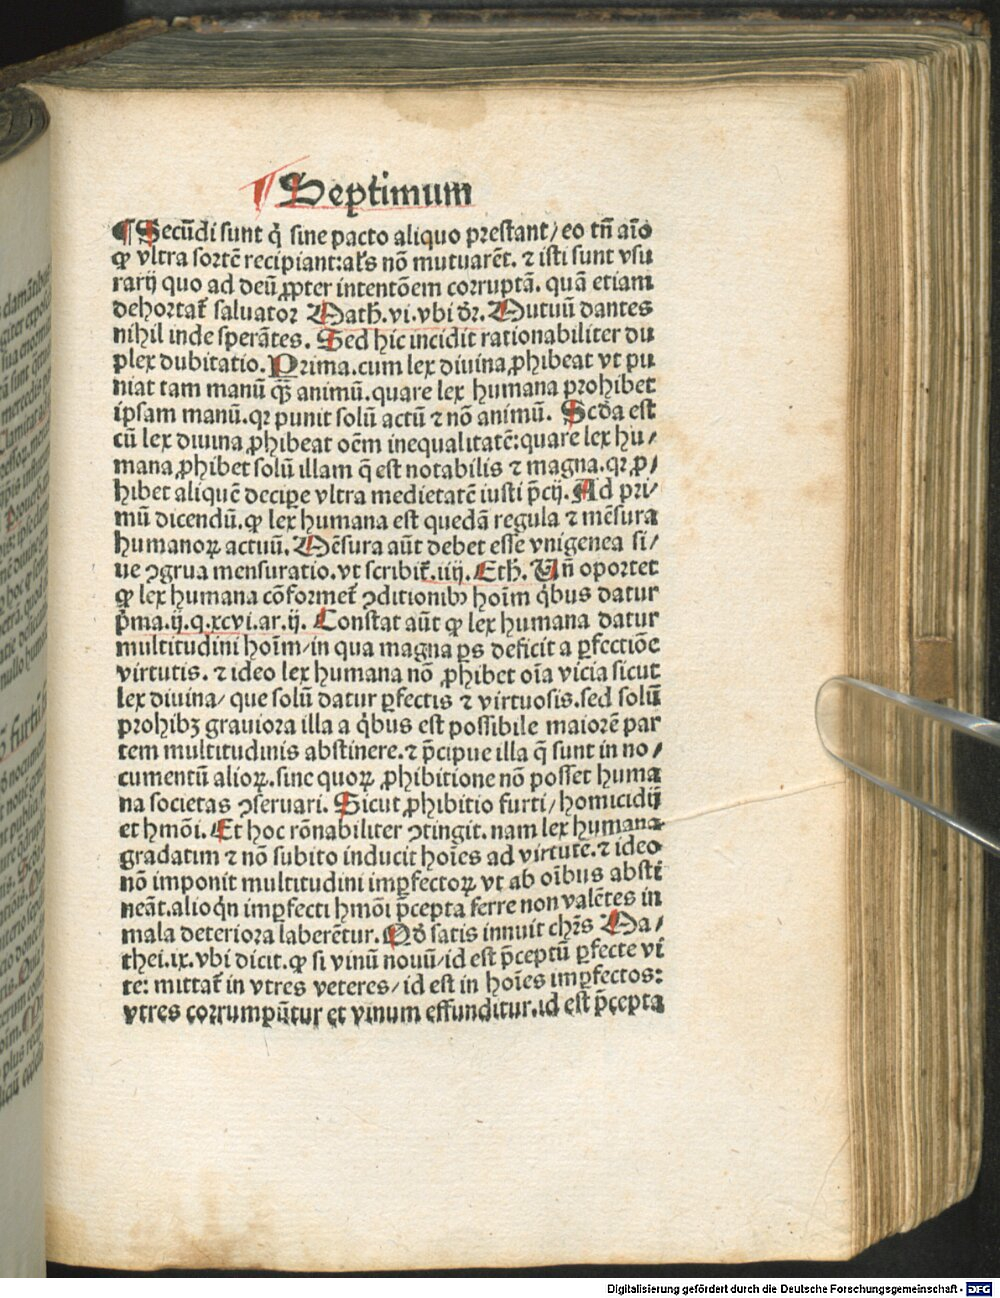 ¶ Septimum
¶ Secūdi sunt q̄ sine pacto aliquo prestant/ eo tn̄ aīo
ꝙ vltra sortē recipiant: al's nō mutuarēt. ⁊ isti sunt vsu
rarij quo ad deū ꝓpter intentōem corruptā. quā etiam
dehortat᷑ saluator Math. vi. vbi dr̄. Mutuū dantes
nihil inde sperātes. Sed hic incidit rationabiliter du
plex dubitatio. Prima. cum lex diuina ꝓhibeat vt pu
niat tam manū qȝ̄ animū. quare lex humana prohibet
ipsam manū. qꝛ punit solū actū ⁊ nō animū. Scd̄a est
cū lex diuina ꝓhibeat oēm inequalitatē: quare lex hu/
mana ꝓhibet solū illam q̄ est notabilis ⁊ magna. qꝛ ꝓ/
hibet aliquē decipe vltra medietatē iusti p̄cij. Ad pri/
mū dicendū. ꝙ lex humana est quedā regula ⁊ mēsura
humanoꝝ actuū. Mēsura aūt debet esse vnigenea si/
ue ꝯgrua mensuratio. vt scribit᷑. iiij. Eth. Un̄ oportet
ꝙ lex humana cōformet᷑ ꝯditionibꝰ hoīm q̇bus datur
p̄ma. ij. q. xcvi. ar. ij. Constat aūt ꝙ lex humana datur
multitudini hoīm/ in qua magna ps deficit a ꝑfectiōe
virtutis. ⁊ ideo lex humana nō ꝓhibet oīa vicia sicut
lex diuina/ que solū datur ꝑfectis ⁊ virtuosis. sed solū
prohibȝ grauiora illa a q̇bus est possibile maiorē par
tem multitudinis abstinere. ⁊ p̄cipue illa q̄ sunt in no/
cumentū alioꝝ. sine quoꝝ ꝓhibitione nō posset huma
na societas ꝯseruari. Sicut ꝓhibitio furti/ homicidij
et hmōi. Et hoc rōnabiliter ꝯtingit. nam lex humana
gradatim ⁊ nō subito inducit hoīes ad virtutē. ⁊ ideo
nō imponit multitudini imꝑfectoꝝ vt ab oībus absti
neāt. alioq̇n imꝑfecti hmōi p̄cepta ferre non valētes in
mala deteriora laberētur. Qd̄ satis innuit chr̄s Ma/
thei. ix. vbi dicit. ꝙ si vinū nouū/ id est p̄ceptū ꝑfecte vi
te: mittat᷑ in vtres veteres/ id est in hoīes imꝑfectos:
vtres corrumpūtur et vinum effunditur. id est p̄cepta
Digitalisierung gefördert durch die Deutsche Forschungsgemeinschaft - DFG